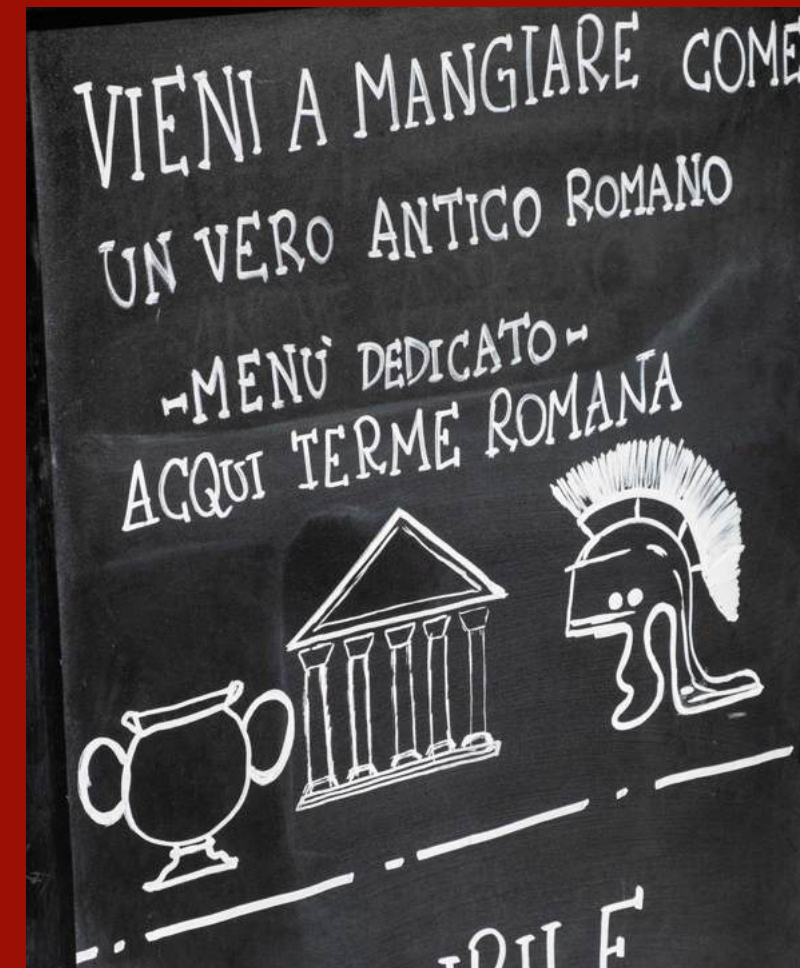 VIENI A MANGIARE COME
UN VERO ANTICO ROMANO
-MENÙ DEDICATO-
ACQUI TERME ROMANA